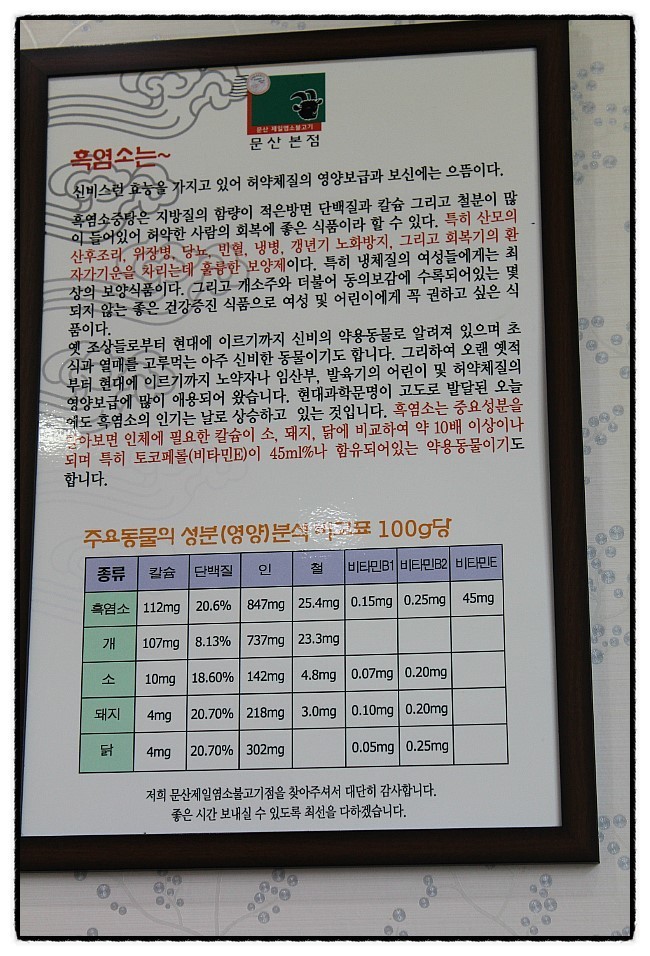 문산 제일염소불고기
문산 본점
흑염소는~
신비스런 효능을 가지고 있어 허약체질의 영양보급과 보신에는 으뜸이다.
흑염소중탕은 지방질의 함량이 적은방면 단백질과 칼슘 그리고 철분이 많
이 들어있어 허약한 사람의 회복에 좋은 식품이라 할 수 있다. 특히 산모의
산후조리, 위장병, 당뇨, 빈혈, 냉병, 갱년기 노화방지, 그리고 회복기의 환
자가기운을 차리는데 훌륭한 보양제이다. 특히 냉체질의 여성들에게는 최
상의 보양식품이다. 그리고 개소주와 더불어 동의보감에 수록되어있는 몇
되지 않는 좋은 건강증진 식품으로 여성 및 어린이에게 꼭 권하고 싶은 식
품이다.
옛 조상들로부터 현대에 이르기까지 신비의 약용동물로 알려져 있으며 초
식과 열매를 고루먹는 아주 신비한 동물이기도 합니다. 그리하여 오랜 옛적
부터 현대에 이르기까지 노약자나 임산부, 발육기의 어린이 및 허약체질의
영양보급에 많이 애용되어 왔습니다. 현대과학문명이 고도로 발달된 오늘
에도 흑염소의 인기는 날로 상승하고 있는 것입니다. 흑염소는 중요성분을
알아보면 인체에 필요한 칼슘이 소, 돼지, 닭에 비교하여 약 10배 이상이나
되며 특히 토코페롤(비타민E)이 45ml%나 함유되어있는 약용동물이기도
합니다.
주요동물의 성분(영양)분석 100g당
종류 칼슘 단백질 인 철 비타민B1 비타민B2 비타민E
흑염소 112mg 20.6% 847mg 25.4mg 0.15mg 0.25mg 45mg
개 107mg 8.13% 737mg 23.3mg
소 10mg 18.60% 142mg 4.8mg 0.07mg 0.20mg
돼지 4mg 20.70% 218mg 3.0mg 0.10mg 0.20mg
닭 4mg 20.70% 302mg 0.05mg 0.25mg
저희 문산제일염소불고기점을 찾아주셔서 대단히 감사합니다.
좋은 시간 보내실 수 있도록 최선을 다하겠습니다.